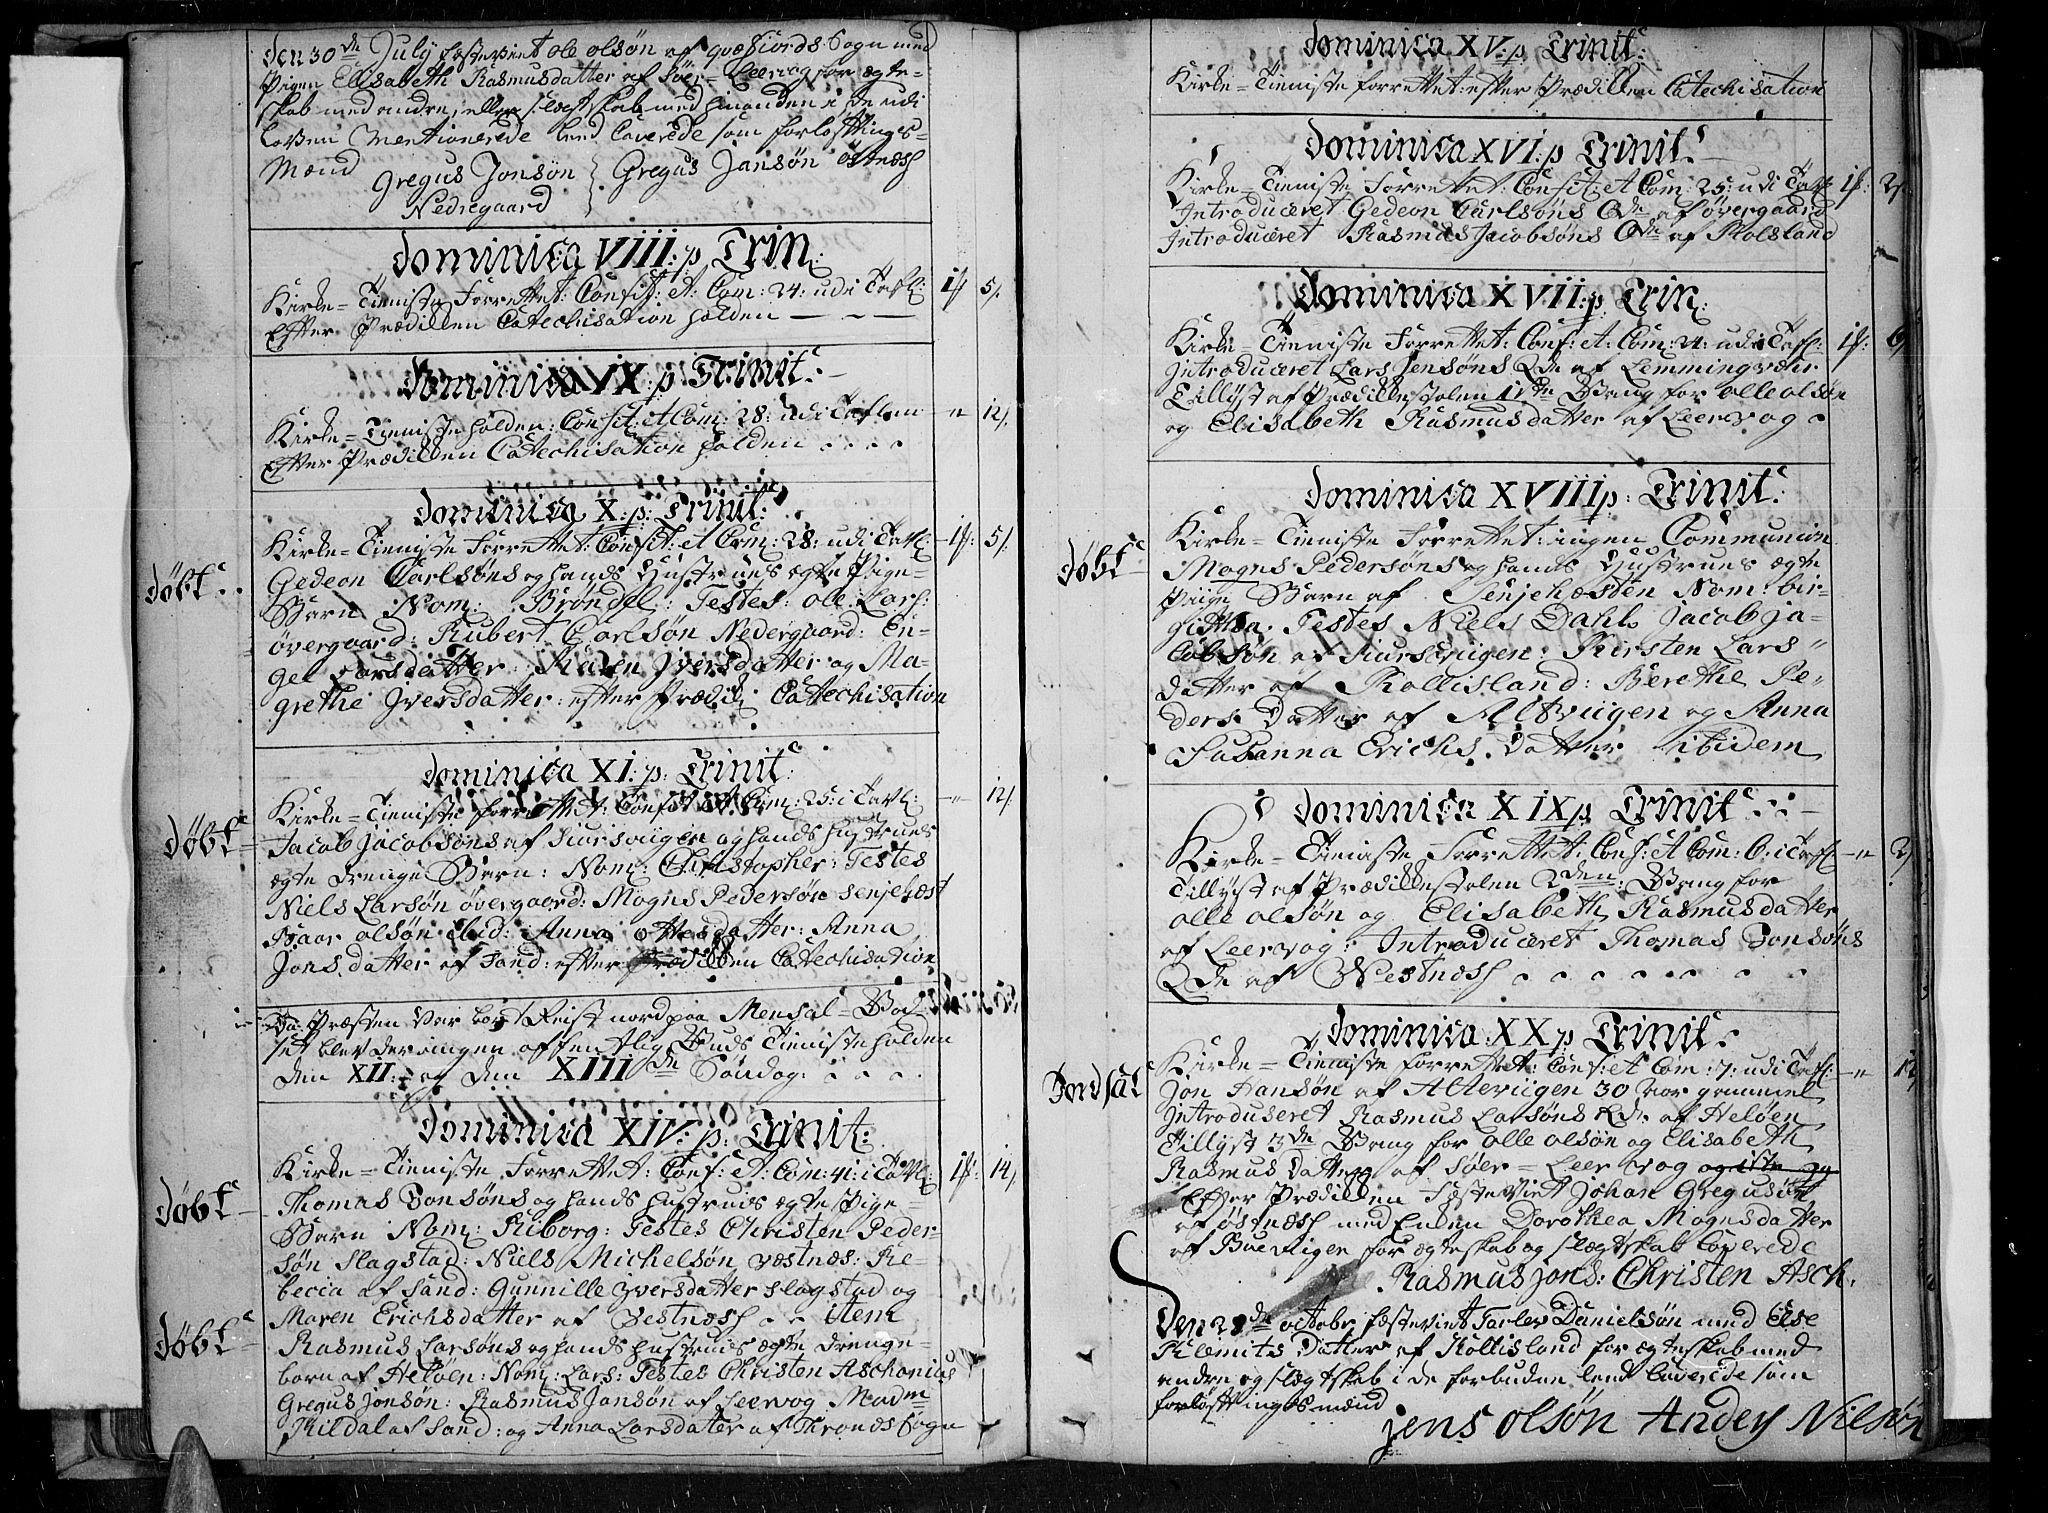 den 30de July fæsteviet ole olsøn af qvæfiords Sogn med
Pigen Elisabeth Rasmusdatter af Søer-Leervog for ægte-
skab med andre, eller slægtskab med hinanden i de udi
Loven Mentionerede leed Caverede som forlofttings-
Mænd Gregus Jonsøn Gregus Jansøn östnæss
Nedregaard
Dominica VIII: p Trin:
Kirke-Tieniste Forrettet: Confit: et: Com: 24: udi Tafl: 1f 5/.
Efter Prædikken Catechisation holden
Dominica IX: p Trinit:
Kirke-Tieniste holden: Confit: et Com: 28: udi Taflen - " 12/.
Efter Prædikken Catechisation holden
Dominica X: p: Trinit:
Kirke-Tieniste Forrettet: Confit: et Com: 28: udi Tafl: 1f: 5/.
Døbt
Gedeon Carlsøns og hands Hustrues ægte Pige-
Barn Nom: Brondel: Testes: ole Lars:
övergaard: Rubert Carlsøn Nedergaard: En-
gel Larsdatter: Karen Jversdatter og Ma-
grethe Jversdatter: efter Prædik: Catechisation
Dominica XI: p: Trinit:
Kirke-Tieniste forrettet: Confit et Com: 25: i Tavl: - " 12/.
Døbt
Jacob Jacobsøns af Siursviigen og hands hustrues
ægte Drenge Barn: Nom: Christopher: Testes
Niels Larsøn övergaard: Mogns Pedersøn Senjehæst
Baar olsøn ibid: Anna ottesdatter: Anna
Jons datter af Sand: efter Prædikken Catechisation
Da Præsten Var bort Reist nord paa Mensal-God-
set blev der ingen offentlig Guds Tieniste holden
den XII: og den XIIIde Søndag:
Dominica XIV: p: Trinit:
Kirke-Tieniste Forrettet: Conf: et: Com: 41: i Tavl: 1f: 14/.
Døbt
Thomas Bonsøns og hands hustrues ægte Pige-
Barn Nom: Kiborg: Testes Christen Peder-
søn Slagstad: Niels Michelsøn Væstnæs: Re-
becia af Sand: Gunnille Jversdatter Slagstad og
Maren Erichsdatter af Vestnæss item
Døbt
Rasmus Larsøns og hands hustrues ægte Drenge-
barn af Heløen: Nom: Lars: Testes Christen Aschanius
Gregus Jonsøn: Rasmus Jansøn af Leervog Madm
Kildal af Sand: og Anna Larsdatter af ThronæsSogn
Dominica XV: p Trinit:
Kirke-Tieniste forrettet: efter Prædikken Catechisation
Dominica XVI: p Trinit:
Kirke-Tieniste Forrettet: Confit: et Com: 25: udi Tafl: 1f: 2/.
Introduceret Gedeon Carlsøns Qde af övergaard
Introduceret Rasmus Jacobsøns Qde af Rolsland
Dominica XVII: p Trin:
Kirke-Tieniste Forrettet: Conf: et: Com: 24: udi Tafl: 1f: 6/
introduceret Lars Jensøns Qde af Lemmingvær
Tillyst af Prædikkestolen 1ste Gang for olle olsøn
og Elisabeth Rasmusdatter af Leervog
Dominica XVIII p: Trinit:
Kirke-Tieniste Forrettet: ingen Communion
Døbt
Mogns Pedersøns og hands Hustrues ægte
Piige Barn af Senjehæsten Nom: bir-
githa. Testes Niels Dahl: Jacob Ja-
cobsøn af Siursviigen: Kirsten Lars
datter af Rollisland: Berethe Pe-
ders Datter af Altviigen og Anna
Susanna Erichs. Datter ibidem
Dominica XIX p Trinit
Kirke-Tieniste Forrettet: Conf: et Com: 6: i Tafl: - " 2/
Tillyst af Prædikkestolen 2den: Gang for
olle olsøn og Elisabeth Rasmusdatter
af Leervog: Introduceret Thomas Bonsøns
Qde af Westnæss
Dominica XX p Trinit
Kirke-Tieniste forrettet: Conf: et Com: 7: udi Tafl: - " 12/
Jordfæt
Jon Hansøn af Alteviigen 30 aar gammel
introduseret Rasmus Larsøns Qd: af Heløen
Tillyst 3de Gang for olle olsøn og Elisabeth
Rasmus Datter af Søer-Leervog
Efter Prædikken Fæsteviet Johan Gregusøn
af östnæss med Enken Dorothea Mognsdatter
af Bueviigen for ægteskab og slægtskab Caverede
Rasmus Jons: Christen Asch.
Den 28de octobr fæsteviet Tarlev Danielsøn med Else
Klemits Datter af Rollisland for ægteskab med
andre og slægtskab i de forbudne leed Caverede som
forlofttingsmænd
Jens Olsøn Anders Nilsøn